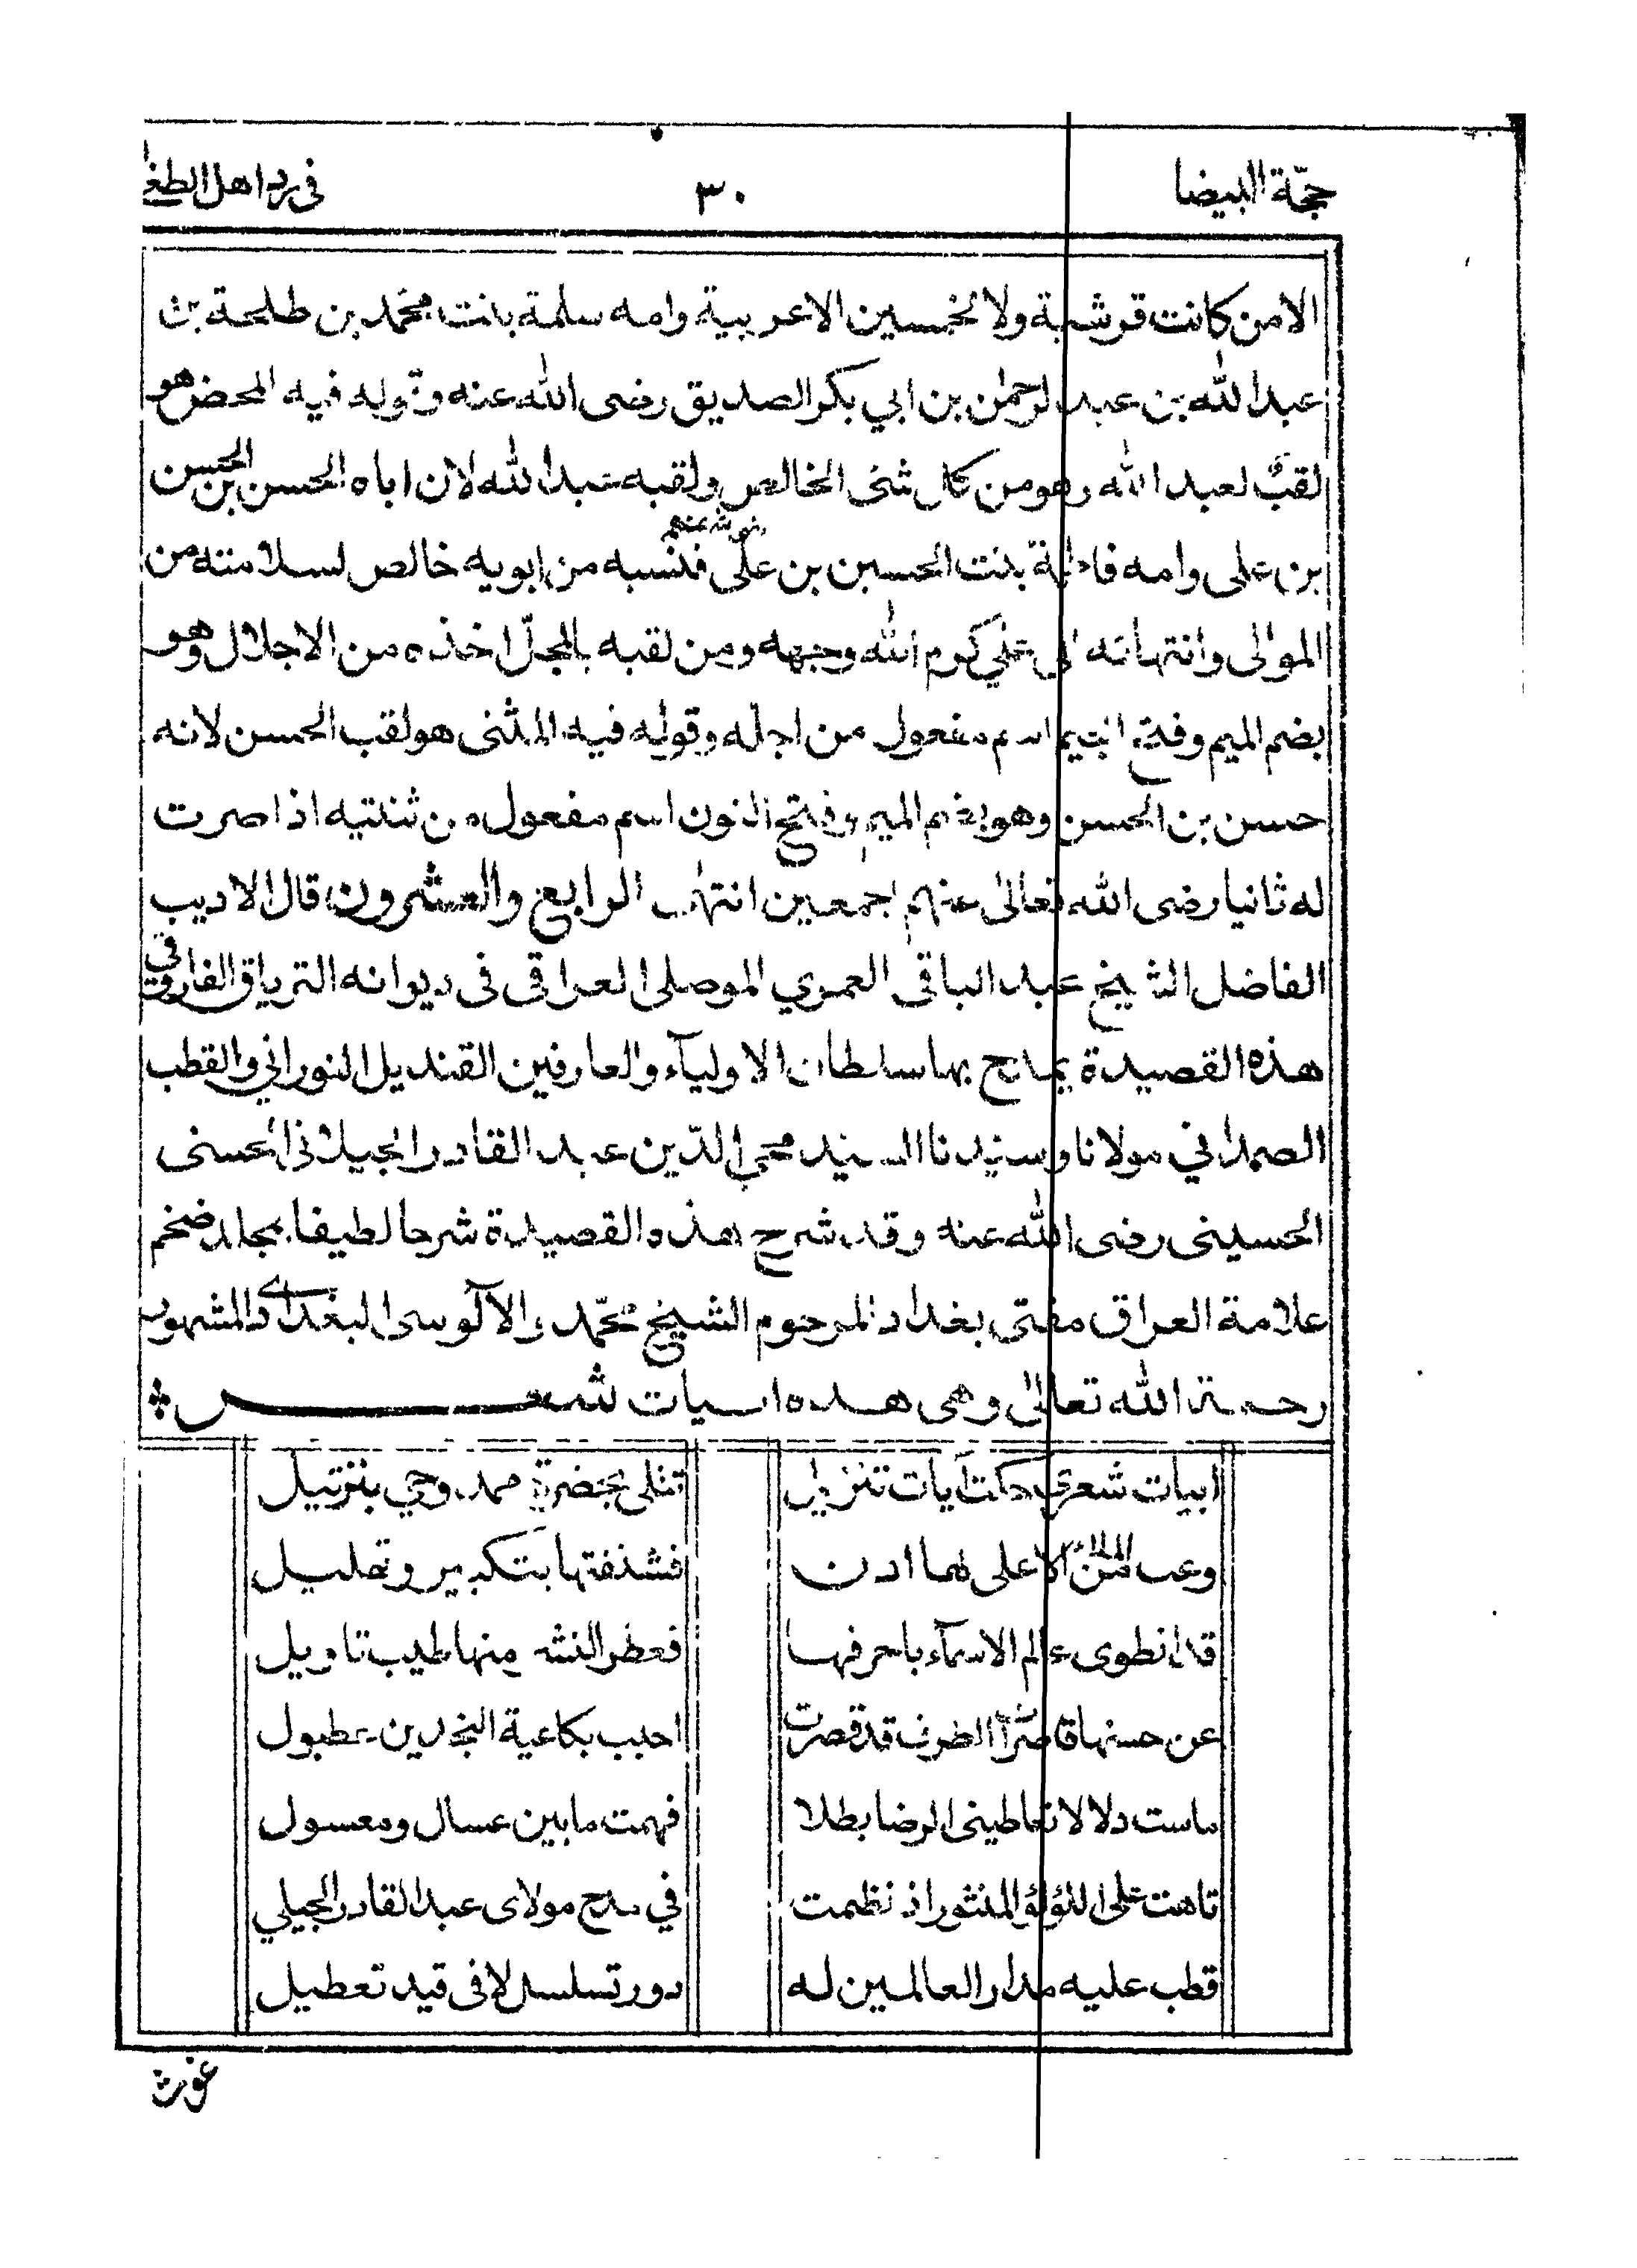 حجّة البيضا
٣٠
فى رد اهل الطغا
الا من كانت قرشية ولا لخمسين الا عربية وامه سلمة بنت محمد بن طلحة بن
عبد الله بن عبد الرحمٰن بن ابي بكر الصديق رضى الله عنه وقوله فيه المحض هو
لقبٌ لعبد الله وهو من كل شئ الخالص ولقبه عبد الله لان اباه الحسن بن الحسن
بن على وامه فاطمة بنت الحسين بن على رضى الله عنهم فنسبه من ابويه خالص لسلامته من
الموالى وانتهائه الى علي كرم الله وجهه ومن لقبه بالمجلّ اخذه من الاجلال وهو
بضم الميم وفتح الجيم اسم مفعول من اجله وقوله فيه المثنى هو لقب الحسن لانه
حسن بن الحسن وهو بضم الميم وفتح النون اسم مفعول من ثنتيه اذا صرت
له ثانيا رضى الله تعالى عنهم اجمعين انتهى الرابع والعشرون قال الاديب
الفاضل الشيخ عبد الباقى العمري الموصلى العراقى فى ديوانه الترياق الفاروقي
هذه القصيدة يمدح بها سلطان الاوليآء والعارفين القنديل النوراني والقطب
الصمداني مولانا وسيدنا السيد محي الدّين عبد القادر الجيلانى الحسنى
الحسينى رضى الله عنه وقد شرح هذه القصيدة شرحا لطيفا بمجلد ضخم
علامة العراق مفتى بغداد المرحوم الشيخ محمّد الآلوسى البغدادى المشهور
رحمة الله تعالىٰ وهى هذه ابيات شعر
ابيات شعري حكت آيات تنزيل تتلى بحضرة ممدوحي بترتيل
وعت الملأ الاعلى لها اذن فشنفتها بتكبير وتهليل
قد انطوى عالم الاسمآء باحرفها فعطر النشر منها طيب تاويل
عن حسنها قاصرات الطرف قد قصرت احبب بكاعبة النجدين عطبول
ماست دلالا تعاطينى الرضا بطلا فهمت ما بين عسال ومعسول
تاهت على اللؤلؤ المنثور اذ نظمت في مدح مولاى عبد القادر الجيلي
قطب عليه مدار العالمين له دور تسلسل لا فى قيد تعطيل
غوث